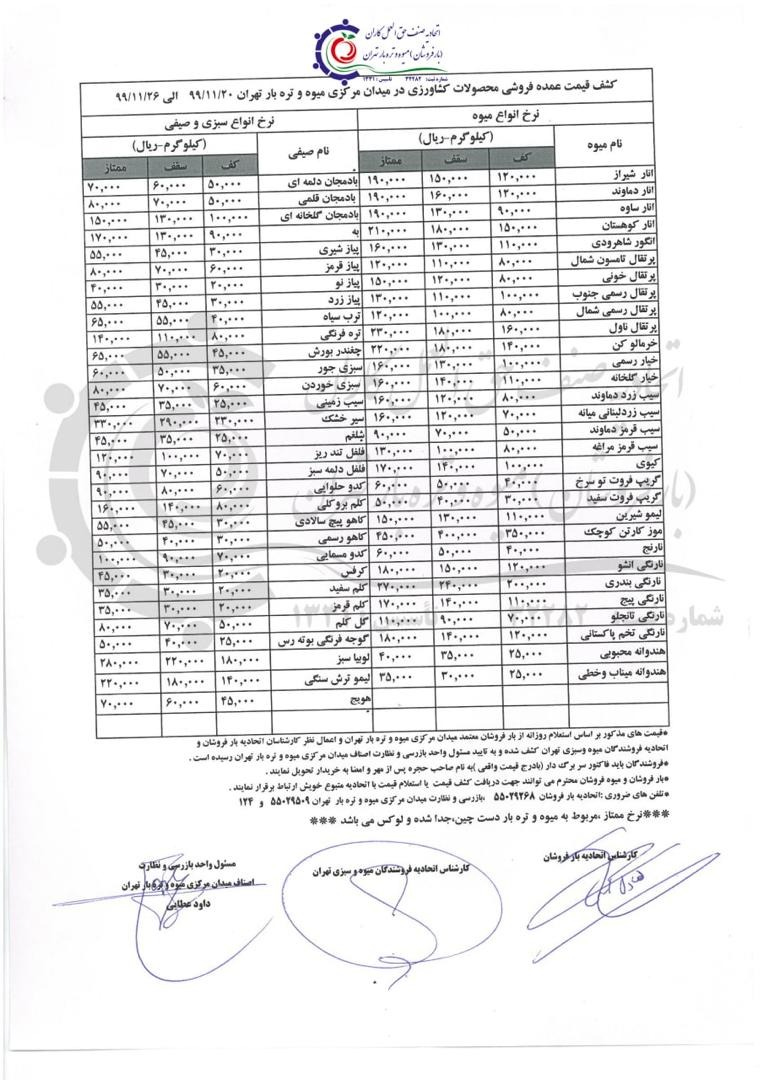 اتحادیه صنف حق العمل کاران
(بارفروشان) میوه و تره بار تهران
شماره ثبت: ۳۲۲۸۲ تاسیس: ۱۳۲۱
کشف قیمت عمده فروشی محصولات کشاورزی در میدان مرکزی میوه و تره بار تهران ۹۹/۱۱/۲۰ الی ۹۹/۱۱/۲۶
نرخ انواع میوه
نام میوه (کیلوگرم-ریال)
کف سقف ممتاز
انار شیراز ۱۲۰,۰۰۰ ۱۵۰,۰۰۰ ۱۹۰,۰۰۰
انار دماوند ۱۲۰,۰۰۰ ۱۶۰,۰۰۰ ۱۹۰,۰۰۰
انار ساوه ۹۰,۰۰۰ ۱۳۰,۰۰۰ ۱۹۰,۰۰۰
انار کوهستان ۱۵۰,۰۰۰ ۱۸۰,۰۰۰ ۲۱۰,۰۰۰
انگور شاهرودی ۱۱۰,۰۰۰ ۱۳۰,۰۰۰ ۱۶۰,۰۰۰
پرتقال تامسون شمال ۸۰,۰۰۰ ۱۱۰,۰۰۰ ۱۲۰,۰۰۰
پرتقال خونی ۸۰,۰۰۰ ۱۲۰,۰۰۰ ۱۵۰,۰۰۰
پرتقال رسمی جنوب ۱۰۰,۰۰۰ ۱۱۰,۰۰۰ ۱۳۰,۰۰۰
پرتقال رسمی شمال ۸۰,۰۰۰ ۱۰۰,۰۰۰ ۱۲۰,۰۰۰
پرتقال ناول ۱۶۰,۰۰۰ ۱۸۰,۰۰۰ ۲۳۰,۰۰۰
خرمالو کن ۱۴۰,۰۰۰ ۱۸۰,۰۰۰ ۲۲۰,۰۰۰
خیار رسمی ۱۰۰,۰۰۰ ۱۳۰,۰۰۰ ۱۶۰,۰۰۰
خیار گلخانه ۱۱۰,۰۰۰ ۱۴۰,۰۰۰ ۱۶۰,۰۰۰
سیب زرد دماوند ۸۰,۰۰۰ ۱۲۰,۰۰۰ ۱۶۰,۰۰۰
سیب زردلبنانی میانه ۷۰,۰۰۰ ۱۲۰,۰۰۰ ۱۶۰,۰۰۰
سیب قرمز دماوند ۵۰,۰۰۰ ۷۰,۰۰۰ ۹۰,۰۰۰
سیب قرمز مراغه ۸۰,۰۰۰ ۱۰۰,۰۰۰ ۱۳۰,۰۰۰
کیوی ۱۰۰,۰۰۰ ۱۴۰,۰۰۰ ۱۷۰,۰۰۰
گریپ فروت تو سرخ ۴۰,۰۰۰ ۵۰,۰۰۰ ۶۰,۰۰۰
گریپ فروت سفید ۳۰,۰۰۰ ۴۰,۰۰۰ ۵۰,۰۰۰
لیمو شیرین ۱۱۰,۰۰۰ ۱۳۰,۰۰۰ ۱۵۰,۰۰۰
موز کارتن کوچک ۳۵۰,۰۰۰ ۴۰۰,۰۰۰ ۴۵۰,۰۰۰
نارنج ۴۰,۰۰۰ ۵۰,۰۰۰ ۶۰,۰۰۰
نارنگی انشو ۱۲۰,۰۰۰ ۱۵۰,۰۰۰ ۱۸۰,۰۰۰
نارنگی بندری ۲۰۰,۰۰۰ ۲۴۰,۰۰۰ ۲۷۰,۰۰۰
نارنگی پیج ۱۱۰,۰۰۰ ۱۴۰,۰۰۰ ۱۷۰,۰۰۰
نارنگی تانجلو ۷۰,۰۰۰ ۹۰,۰۰۰ ۱۱۰,۰۰۰
نارنگی تخم پاکستانی ۱۲۰,۰۰۰ ۱۴۰,۰۰۰ ۱۸۰,۰۰۰
هندوانه محبوبی ۲۵,۰۰۰ ۳۵,۰۰۰ ۴۰,۰۰۰
هندوانه میناب وخطی ۲۵,۰۰۰ ۳۰,۰۰۰ ۳۵,۰۰۰
نرخ انواع سبزی و صیفی
نام صیفی (کیلوگرم-ریال)
کف سقف ممتاز
بادمجان دلمه ای ۵۰,۰۰۰ ۶۰,۰۰۰ ۷۰,۰۰۰
بادمجان قلمی ۵۰,۰۰۰ ۷۰,۰۰۰ ۸۰,۰۰۰
بادمجان گلخانه ای ۱۰۰,۰۰۰ ۱۳۰,۰۰۰ ۱۵۰,۰۰۰
به ۹۰,۰۰۰ ۱۳۰,۰۰۰ ۱۷۰,۰۰۰
پیاز شیری ۳۰,۰۰۰ ۴۵,۰۰۰ ۵۵,۰۰۰
پیاز قرمز ۶۰,۰۰۰ ۷۰,۰۰۰ ۸۰,۰۰۰
پیاز نو ۲۰,۰۰۰ ۳۰,۰۰۰ ۴۰,۰۰۰
پیاز زرد ۳۰,۰۰۰ ۴۵,۰۰۰ ۵۵,۰۰۰
ترب سیاه ۴۰,۰۰۰ ۵۵,۰۰۰ ۶۵,۰۰۰
تره فرنگی ۸۰,۰۰۰ ۱۱۰,۰۰۰ ۱۴۰,۰۰۰
چغندر بورش ۴۵,۰۰۰ ۵۵,۰۰۰ ۶۵,۰۰۰
سبزی جور ۳۵,۰۰۰ ۵۰,۰۰۰ ۶۰,۰۰۰
سبزی خوردن ۶۰,۰۰۰ ۷۰,۰۰۰ ۸۰,۰۰۰
سیب زمینی ۲۵,۰۰۰ ۳۵,۰۰۰ ۴۵,۰۰۰
سیر خشک ۲۳۰,۰۰۰ ۲۹۰,۰۰۰ ۳۳۰,۰۰۰
شلغم ۲۵,۰۰۰ ۳۵,۰۰۰ ۴۵,۰۰۰
فلفل تند ریز ۷۰,۰۰۰ ۱۰۰,۰۰۰ ۱۲۰,۰۰۰
فلفل دلمه سبز ۵۰,۰۰۰ ۷۰,۰۰۰ ۹۰,۰۰۰
کدو حلوایی ۶۰,۰۰۰ ۸۰,۰۰۰ ۹۰,۰۰۰
کلم بروکلی ۸۰,۰۰۰ ۱۴۰,۰۰۰ ۱۶۰,۰۰۰
کاهو پیچ سالادی ۳۰,۰۰۰ ۴۵,۰۰۰ ۵۵,۰۰۰
کاهو رسمی ۳۰,۰۰۰ ۴۰,۰۰۰ ۵۰,۰۰۰
کدو مسمایی ۷۰,۰۰۰ ۹۰,۰۰۰ ۱۰۰,۰۰۰
کرفس ۲۰,۰۰۰ ۳۰,۰۰۰ ۴۵,۰۰۰
کلم سفید ۲۰,۰۰۰ ۳۰,۰۰۰ ۳۵,۰۰۰
کلم قرمز ۲۰,۰۰۰ ۳۰,۰۰۰ ۳۵,۰۰۰
گل کلم ۵۰,۰۰۰ ۷۰,۰۰۰ ۸۰,۰۰۰
گوجه فرنگی بوته رس ۲۵,۰۰۰ ۴۰,۰۰۰ ۵۰,۰۰۰
لوبیا سبز ۱۸۰,۰۰۰ ۲۲۰,۰۰۰ ۲۸۰,۰۰۰
لیمو ترش سنگی ۱۴۰,۰۰۰ ۱۸۰,۰۰۰ ۲۲۰,۰۰۰
هویج ۴۵,۰۰۰ ۶۰,۰۰۰ ۷۰,۰۰۰
*قیمت های مذکور بر اساس استعلام روزانه از بار فروشان معتمد میدان مرکزی میوه و تره بار تهران و اعمال نظر کارشناسان اتحادیه بار فروشان و
اتحادیه فروشندگان میوه وسبزی تهران کشف شده و به تایید مسئول واحد بازرسی و نظارت اصناف میدان مرکزی میوه و تره بار تهران رسیده است .
*فروشندگان باید فاکتور سر برگ دار (بادرج قیمت واقعی )به نام صاحب حجره پس از مهر و امضا به خریدار تحویل نمایند .
*بار فروشان و میوه فروشان محترم می توانند جهت دریافت کشف قیمت یا استعلام قیمت با اتحادیه متبوع خویش ارتباط برقرار نمایند .
*تلفن های ضروری :اتحادیه بار فروشان ۵۵۰۲۹۲۶۸ ،بازرسی و نظارت میدان مرکزی میوه و تره بار تهران ۵۵۰۲۹۵۰۹ و ۱۲۴
***نرخ ممتاز ،مربوط به میوه و تره بار دست چین،جدا شده و لوکس می باشد ***
کارشناس اتحادیه بار فروشان
کارشناس اتحادیه فروشندگان میوه و سبزی تهران
مسئول واحد بازرسی و نظارت
اصناف میدان مرکزی میوه و تره بار تهران
داود عطایی